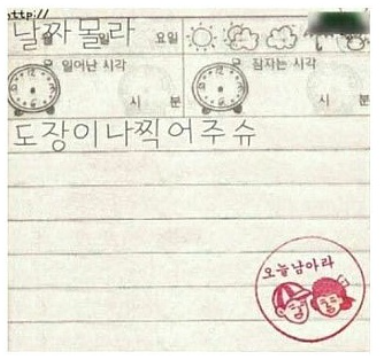 http://
날짜 몰라 요일
일어난 시각 잠자는 시각
시 분 시 분
도장이나찍어주슈
오늘남아라